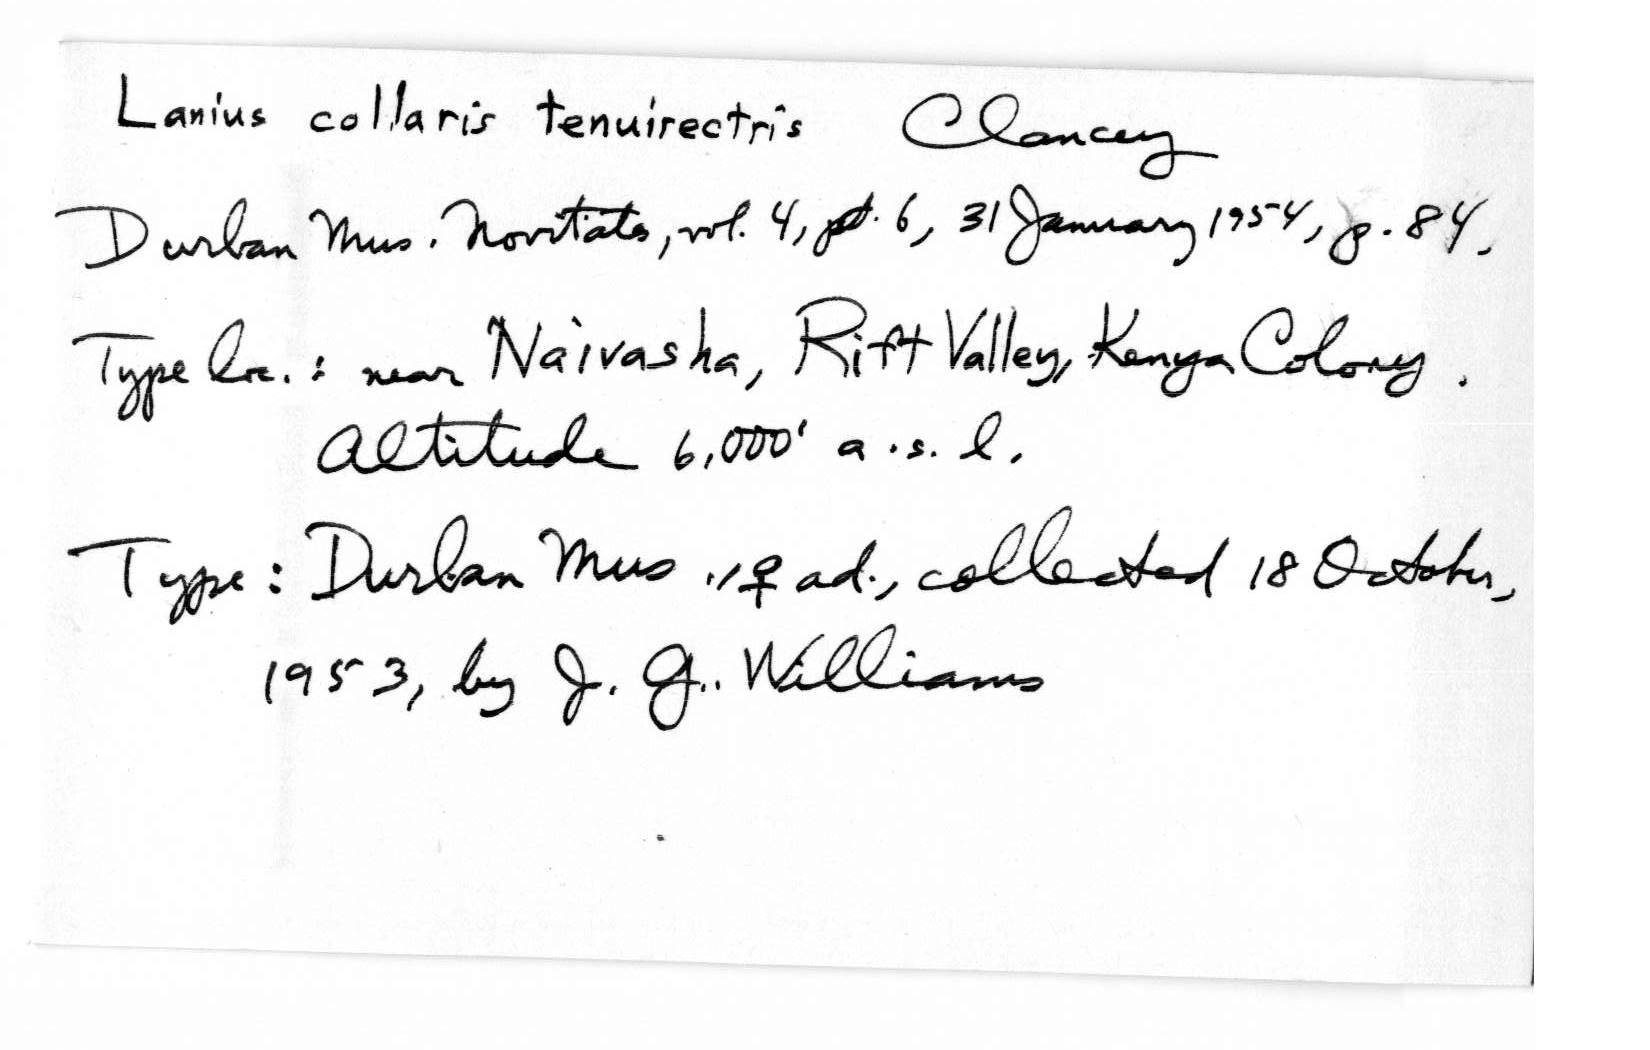 Lanius collaris tenuirectris Clancey
Durban Mus. Novitates, vol. 4, pt. 6, 31 January 1954, p. 84.
Type loc.: near Naivasha, Rift Valley, Kenya Colony.
Altitude 6,000' a.s.l.
Type: Durban Mus., ♀ ad., collected 18 October,
1953, by J. G. Williams